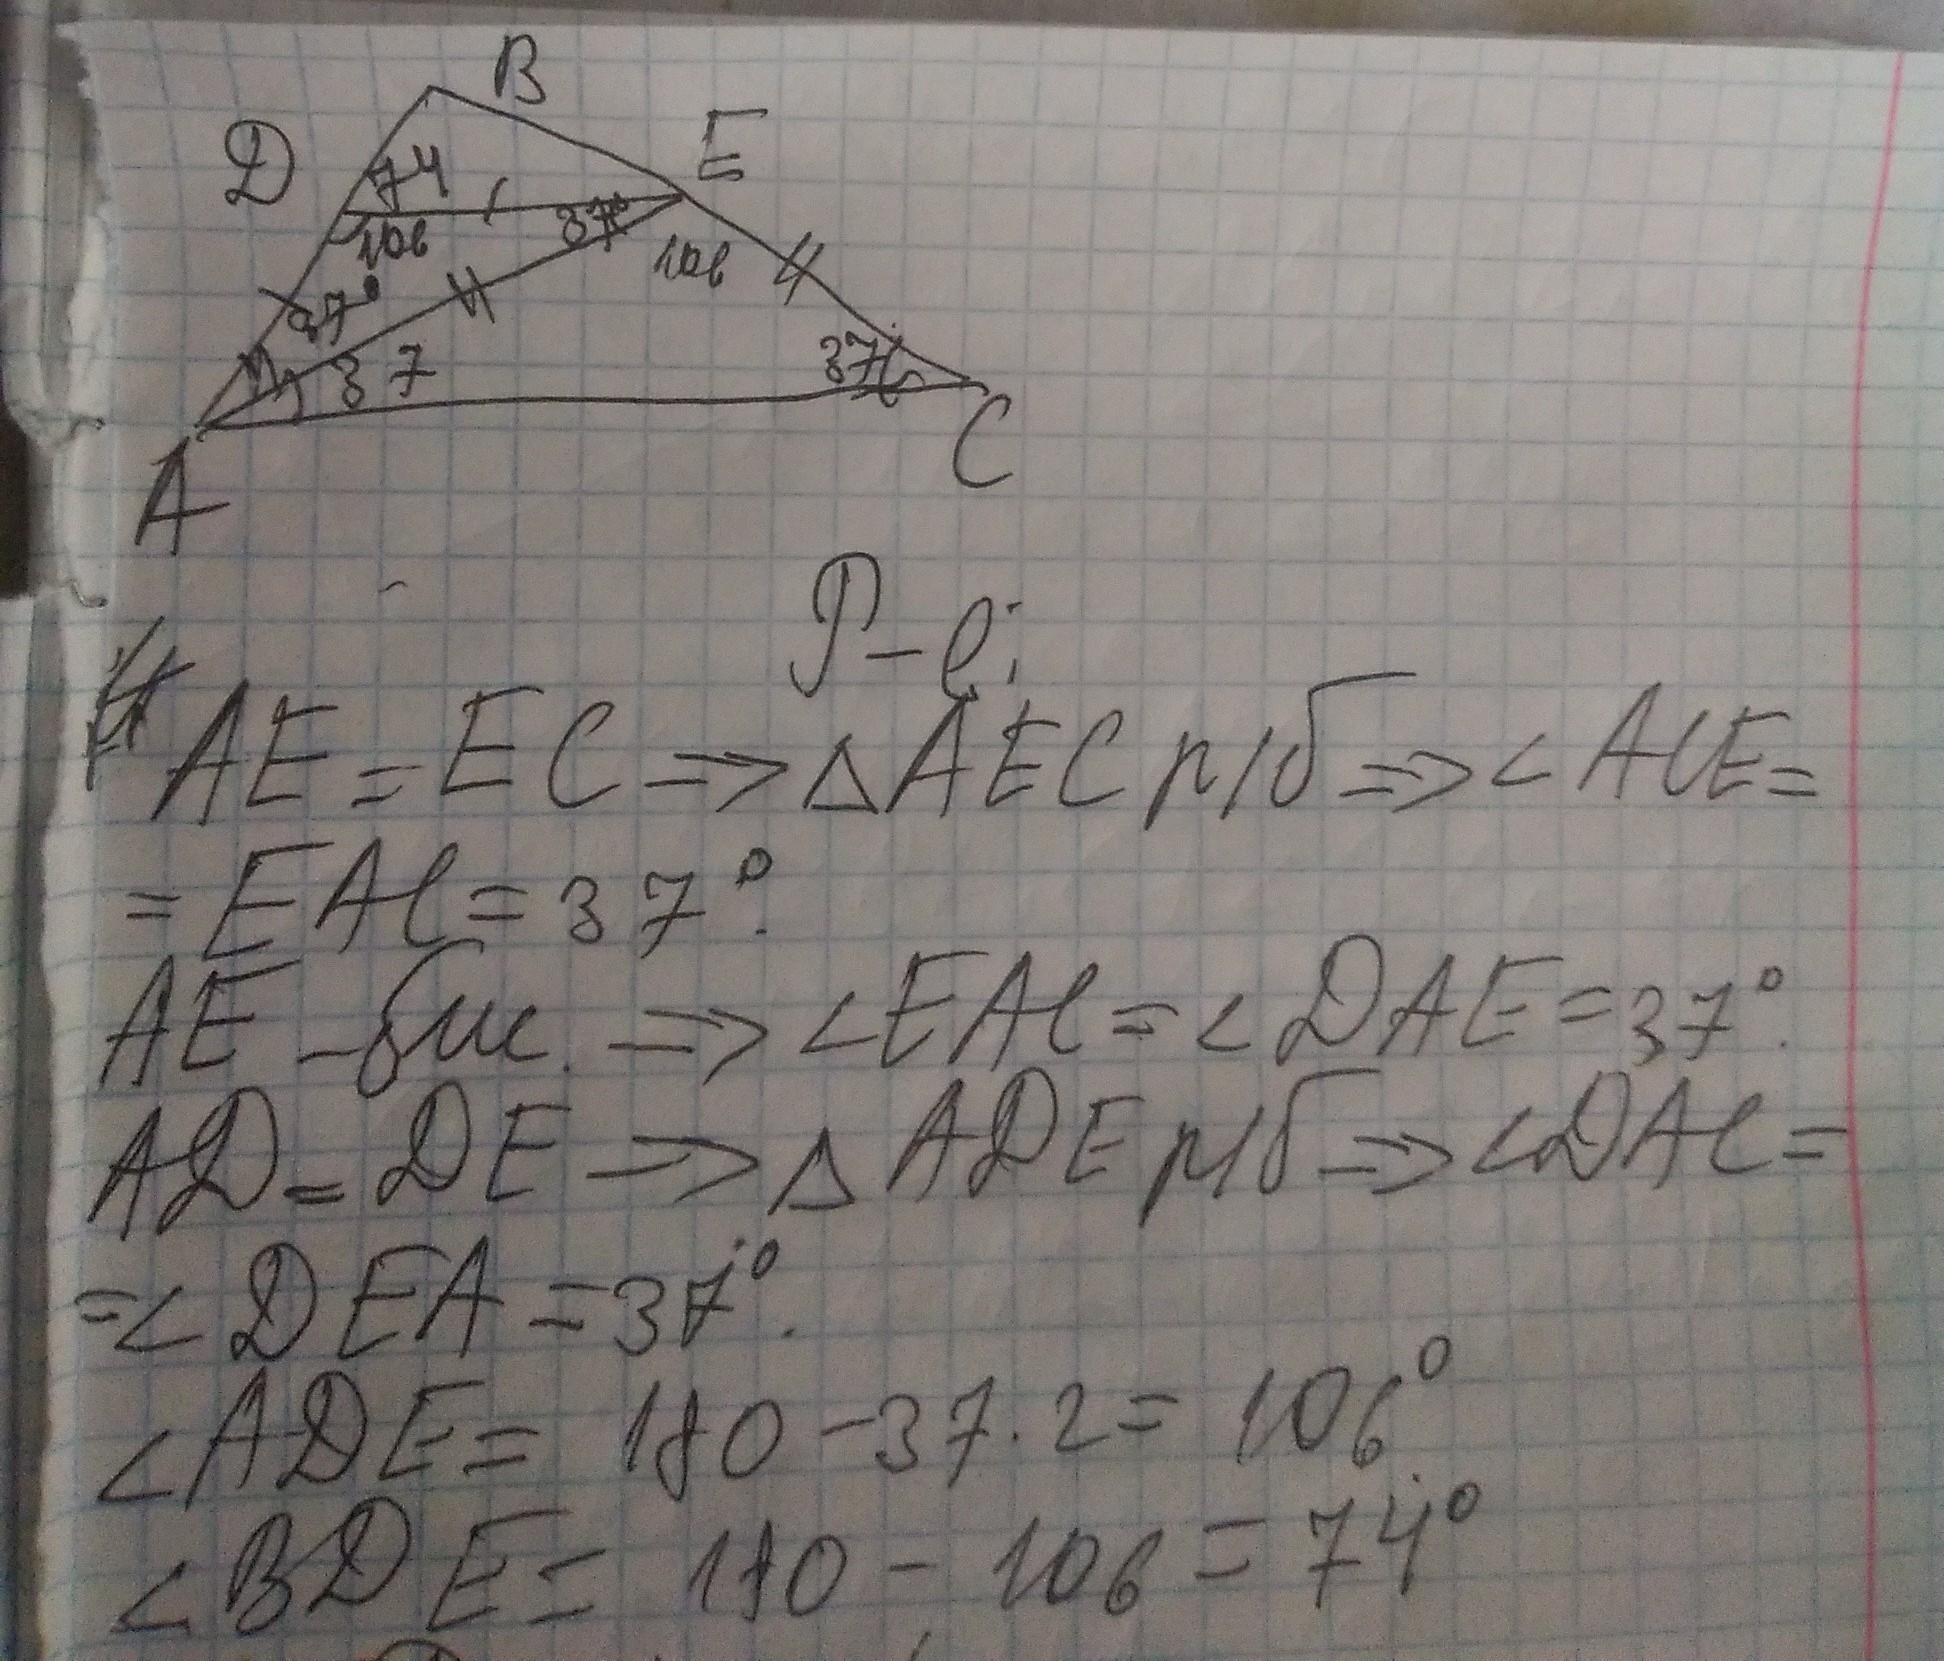 B
D
E
74
106
37°
106
37°
37
37
A
C
Р-е:
AE = EC => △AEC р/б => ∠ACE =
= EAC = 37°.
AE - бис. => ∠EAC = ∠DAE = 37°.
AD = DE => △ADE р/б => ∠DAC =
= ∠DEA = 37°.
∠ADE = 180 - 37 · 2 = 106°
∠BDE = 180 - 106 = 74°